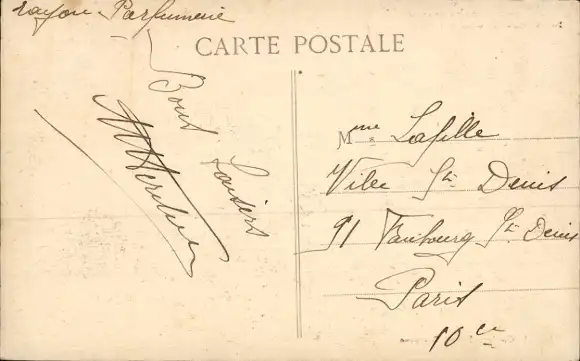 rayon Parfumerie
CARTE POSTALE
Bons baisers
Mme Lafille
Ville St Denis
91 Faubourg St Denis
Paris
10e